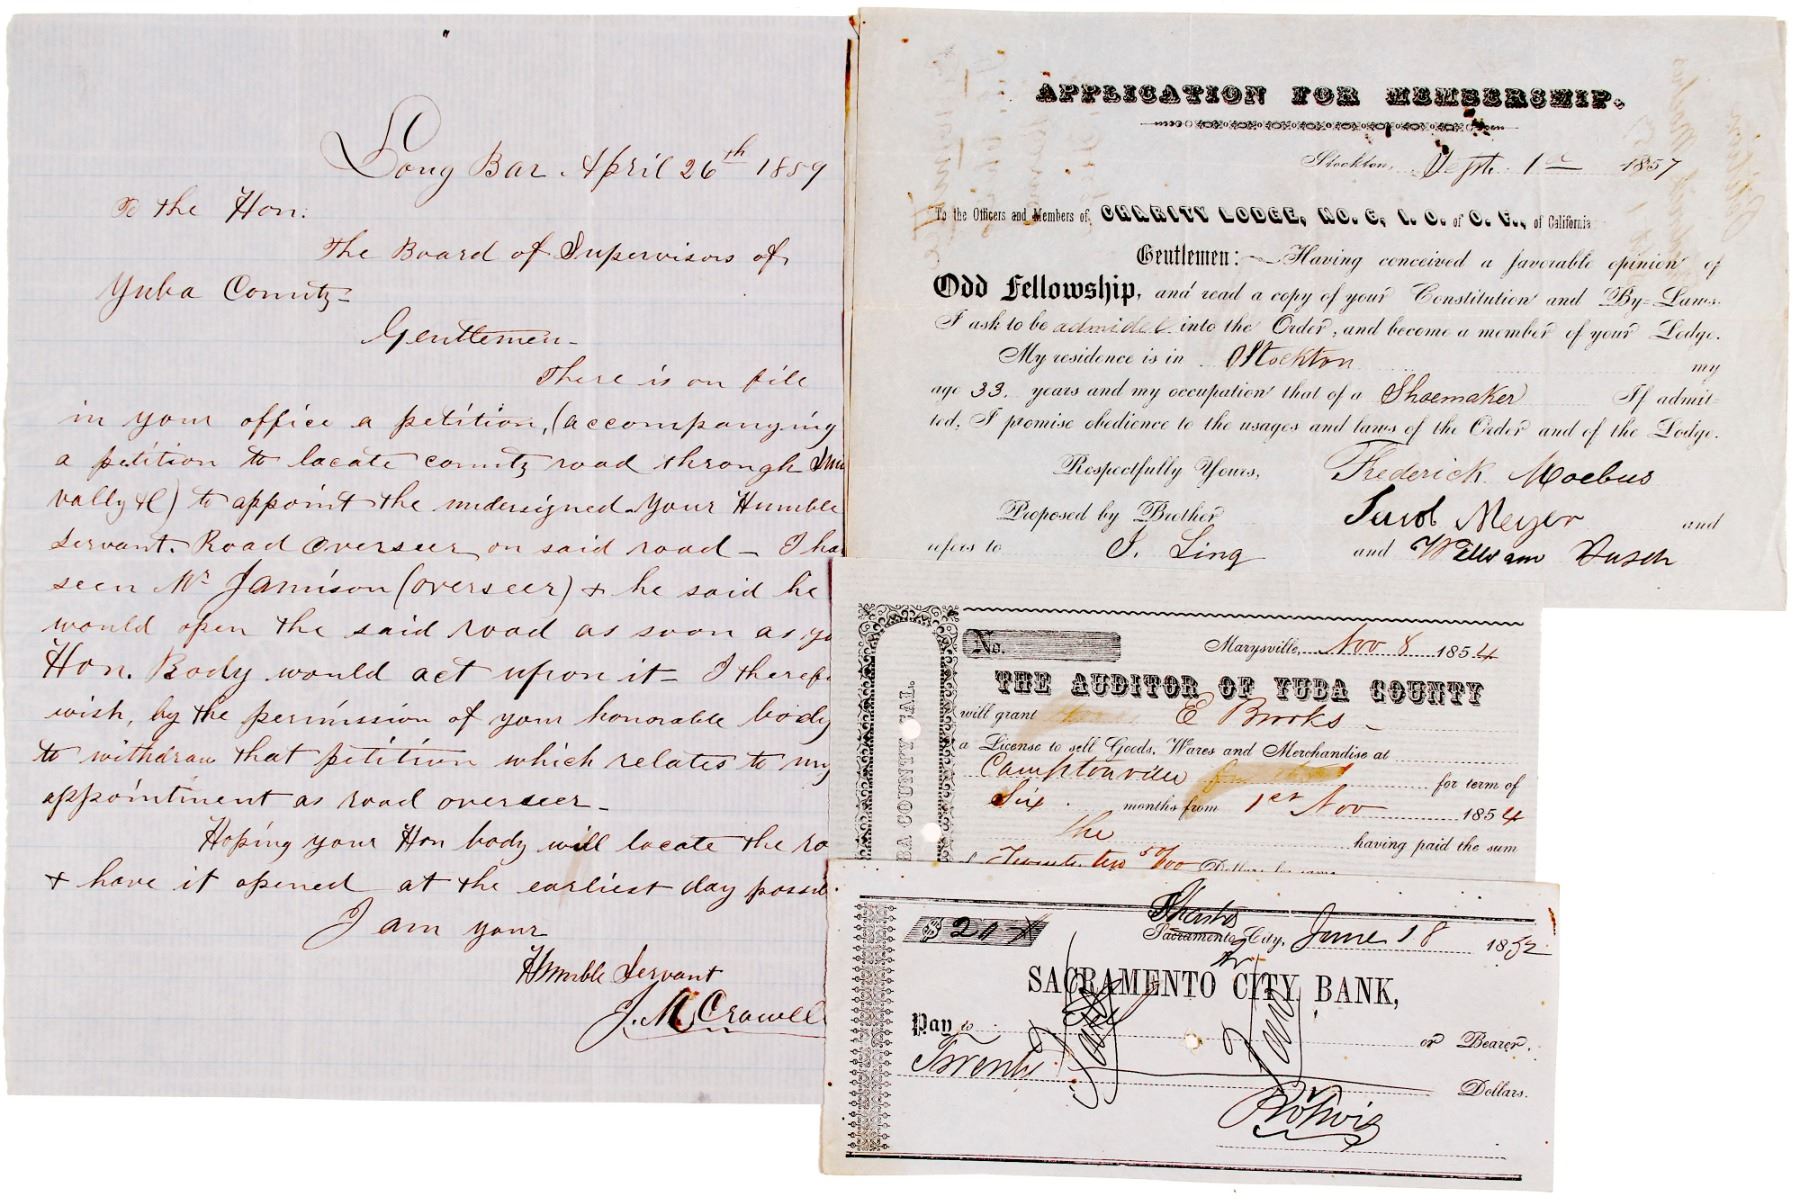 Long Bar. April 26th 1859
To the Hon.
The Board of Supervisors of
Yuba County-
Gentlemen-
There is on file
in your office a petition, (accompanying
a petition to locate county road through
vally &c) to appoint the undersigned your Humble
servant. Road Overseer on said road - I ha
seen Mr Jamison (overseer) & he said he
would open the said road as soon as yo
Hon. Body would act upon it - I theref
wish, by the permission of your honorable body
to withdraw that petition which relates to my
appointment as road overseer-
Hoping your Hon body will locate the ro
& have it opened at the earliest day possi
I am your
Humble Servant
J. M. Crowell
APPLICATION FOR MEMBERSHIP.
Stockton, Sept. 1st 1857
To the Officers and Members of CHARITY LODGE, NO. 6, I. O. of O. F., of California
Gentlemen: Having conceived a favorable opinion of
Odd Fellowship, and read a copy of your Constitution and By-Laws.
I ask to be into the Order, and become a member of your Lodge.
My residence is in Stockton my
age 33. years and my occupation that of a Shoemaker If admit
ted, I promise obedience to the usages and laws of the Order and of the Lodge.
Respectfully Yours, Frederick Moebus
Proposed by Brother Jacob Meyer and
refers to J. Ling and William
No. Marysville, Nov 8 1854
THE AUDITOR OF YUBA COUNTY
will grant E Brooks
a License to sell Goods, Wares and Merchandise at
Camptonville for term of
Six months from 1st Nov 1854
the having paid the sum
Twenty two 50/100 Dollars
BA COUNTY CAL.
$ 20
Shasta
Sacramento City, June 18 1852
SACRAMENTO CITY BANK,
Pay to or Bearer.
Twenty Dollars.